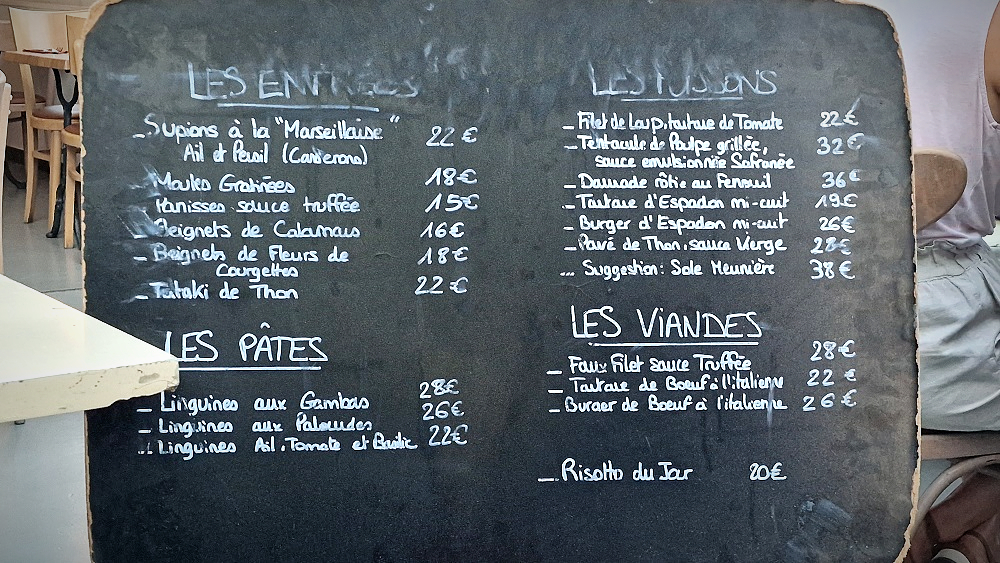 LES ENTRÉES
_ Supions à la "Marseillaise" 22€
Ail et Persil (Casserons)
_ Moules Gratinées 18€
_ Panisses sauce truffée 15€
_ Beignets de Calamars 16€
_ Beignets de Fleurs de 18€
Courgettes
_ Tataki de Thon 22€
LES PÂTES
_ Linguines aux Gambas 28€
_ Linguines aux Palourdes 26€
_ Linguines Ail, Tomate et Basilic 22€
LES POISSONS
_ Filet de Loup, tartare de Tomate 22€
_ Tentacule de Poulpe grillée, 32€
sauce emulsionnée Safranée
_ Daurade rôtie au Fenouil 36€
_ Tartare d'Espadon mi-cuit 19€
_ Burger d'Espadon mi-cuit 26€
_ Pavé de Thon, sauce Vierge 28€
... Suggestion: Sole Meunière 38€
LES VIANDES
_ Faux Filet sauce Truffée 28€
_ Tartare de Boeuf à l'italienne 22€
_ Burger de Boeuf à l'italienne 26€
_ Risotto du Jour 20€